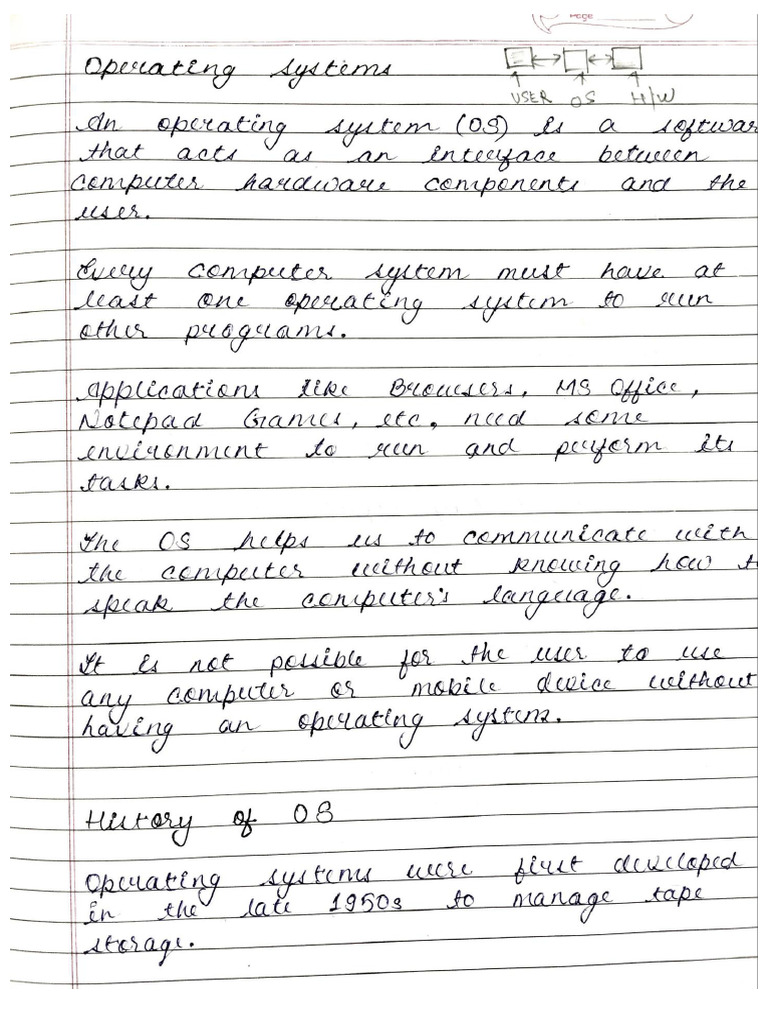 Page
Operating Systems
USER OS H/W
An operating system (OS) is a softwar
that acts as an interface between
computer hardware components and the
user.
Every computer system must have at
least one operating system to run
other programs.
Applications like Browsers, MS Office,
Notepad Games, etc, need some
environment to run and perform its
tasks.
The OS helps us to communicate with
the computer without knowing how t
speak the computer's language.
It is not possible for the user to use
any computer or mobile device without
having an operating system.
History of OS
Operating systems were first developed
in the late 1950s to manage tape
storage.